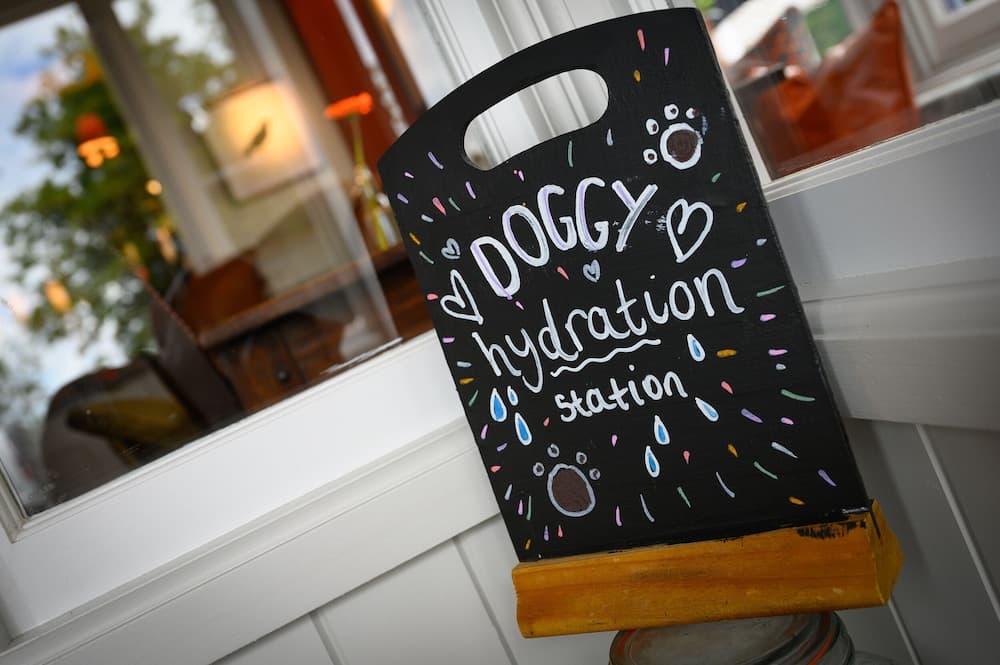 DOGGY
hydration
station